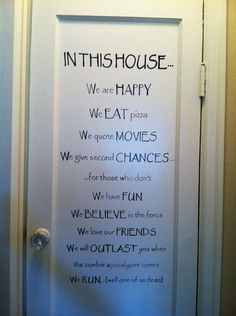 IN THIS HOUSE...
We are HAPPY
We EAT pizza
We quote MOVIES
We give second CHANCES...
...for those who don't
We have FUN
We BELIEVE in the force
We love our FRIENDS
We will OUTLAST you when
the zombie apocalypse comes
We RUN...(well one of us does)